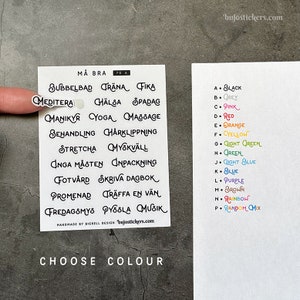 bujostickers.com
MÅ BRA
BUBBELBAD TRÄNA FIKA
MEDITERA HÄLSA SPADAG
MANIKYR YOGA MASSAGE
BEHANDLING HÅRKLIPPNING
STRETCHA MYSKVÄLL
INGA MÅSTEN UNPACKNING
FOTVÅRD SKRIVA DAGBOK
PROMENAD TRÄFFA EN VÄN
FREDAGSMYS PYSSLA MUSIK
HANDMADE BY BICKELL DESIGN bujostickers.com
A • BLACK
B • GREY
C • PINK
D • RED
E • ORANGE
F • YELLOW
G • LIGHT GREEN
H • GREEN
J • LIGHT BLUE
K • BLUE
L • PURPLE
M • BROWN
N • RAINBOW
P • RANDOM MIX
CHOOSE COLOUR